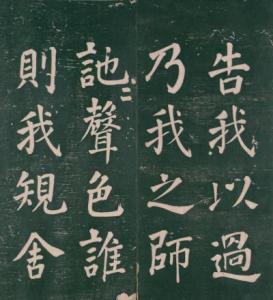 告我以過
乃我之師
訑〻聲色誰
則我規舍